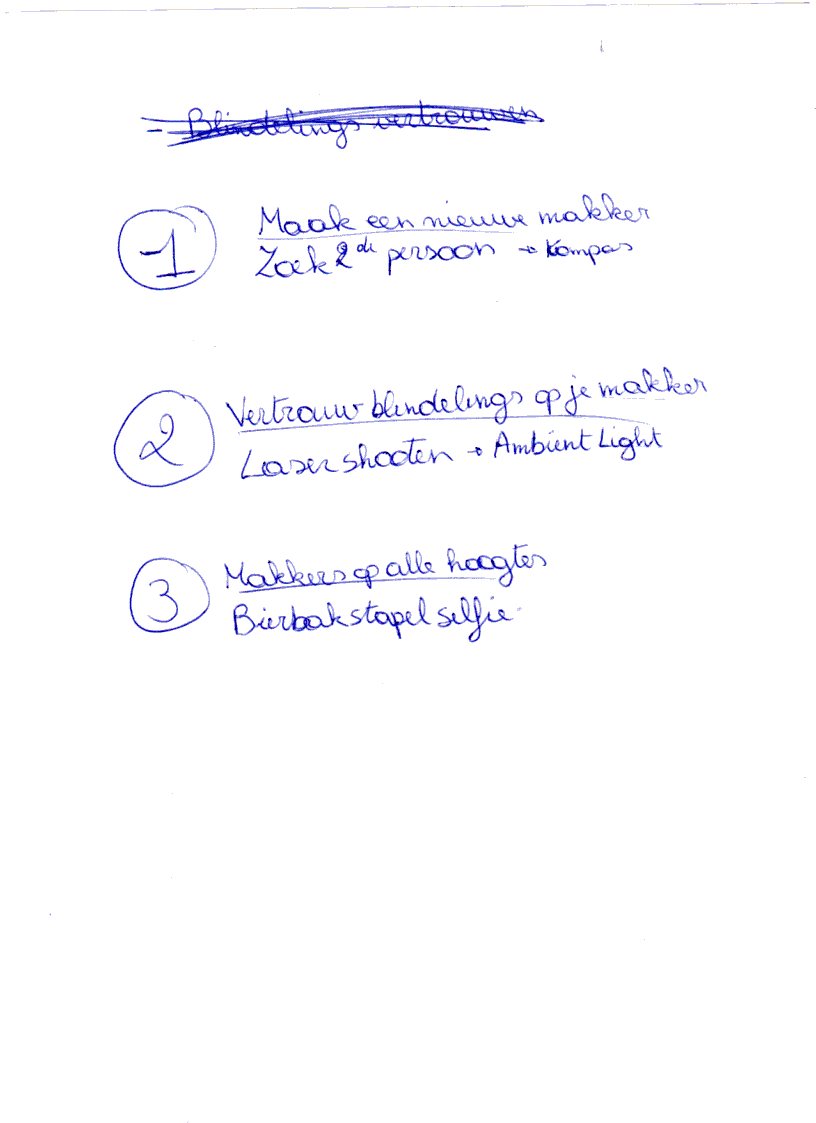 - Blindelings vertrouwen
1
Maak een nieuwe makker
Zoek 2de persoon → Kompas
2
Vertrouw blindelings op je makker
Lasershooten → Ambient Light
3
Makkers op alle hoogtes
Bierbak stapel selfie